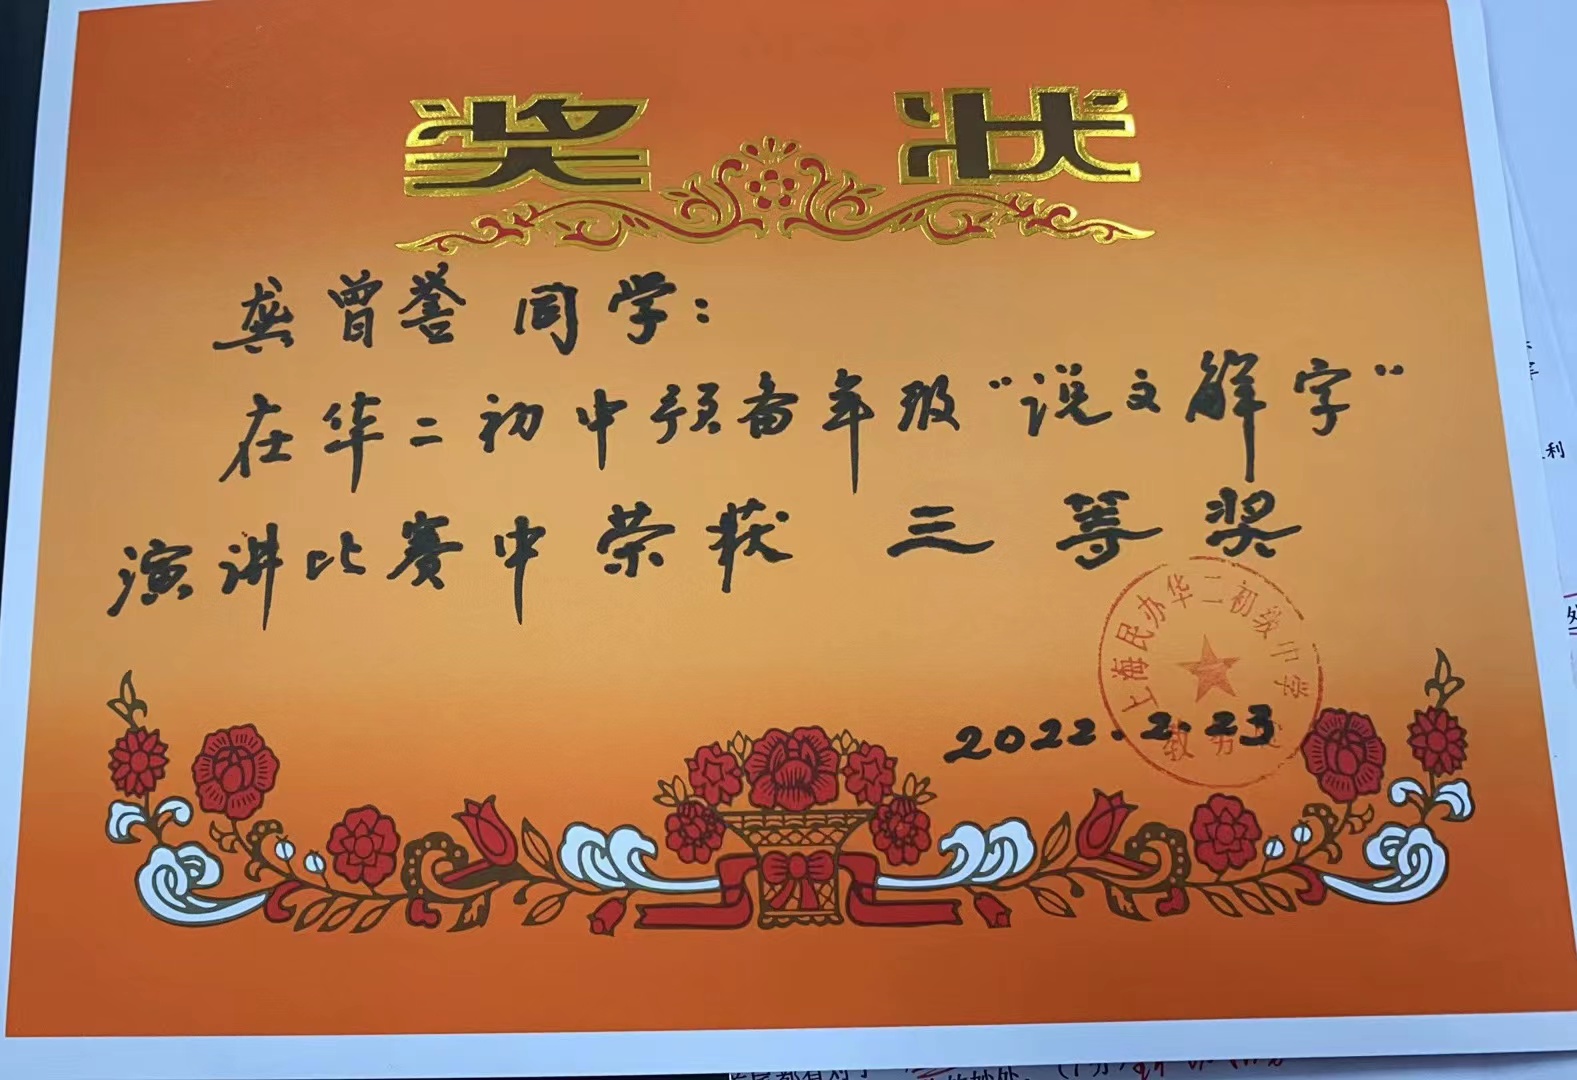 奖状
龚曾誉同学：
在华二初中预备年级“说文解字”
演讲比赛中荣获 三等奖
上海民办华二初级中学
教务处
2022.2.23
利